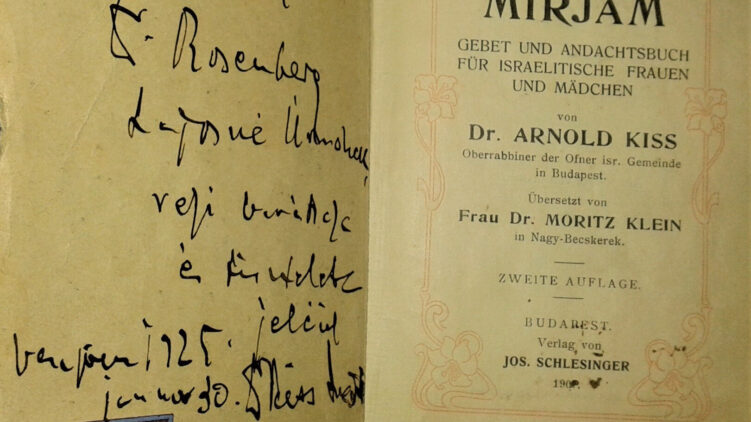 Dr Rosenberg
Lajosné Úrnőnek,
régi barátsága
és tisztelete
jeléül
1925.
január 30. Dr Kiss Arnold
MIRJAM
GEBET UND ANDACHTSBUCH
FÜR ISRAELITISCHE FRAUEN
UND MÄDCHEN
von
Dr. ARNOLD KISS
Oberrabbiner der Ofner isr. Gemeinde
in Budapest.
Übersetzt von
Frau Dr. MORITZ KLEIN
in Nagy-Becskerek.
ZWEITE AUFLAGE.
BUDAPEST.
Verlag von
JOS. SCHLESINGER